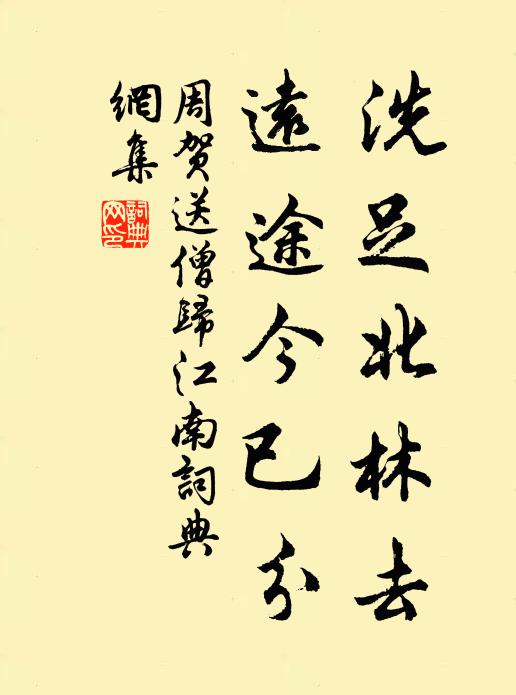 洗足北林去
遠途今已分
周賀送僧歸江南詞典
網集
詞典
网印